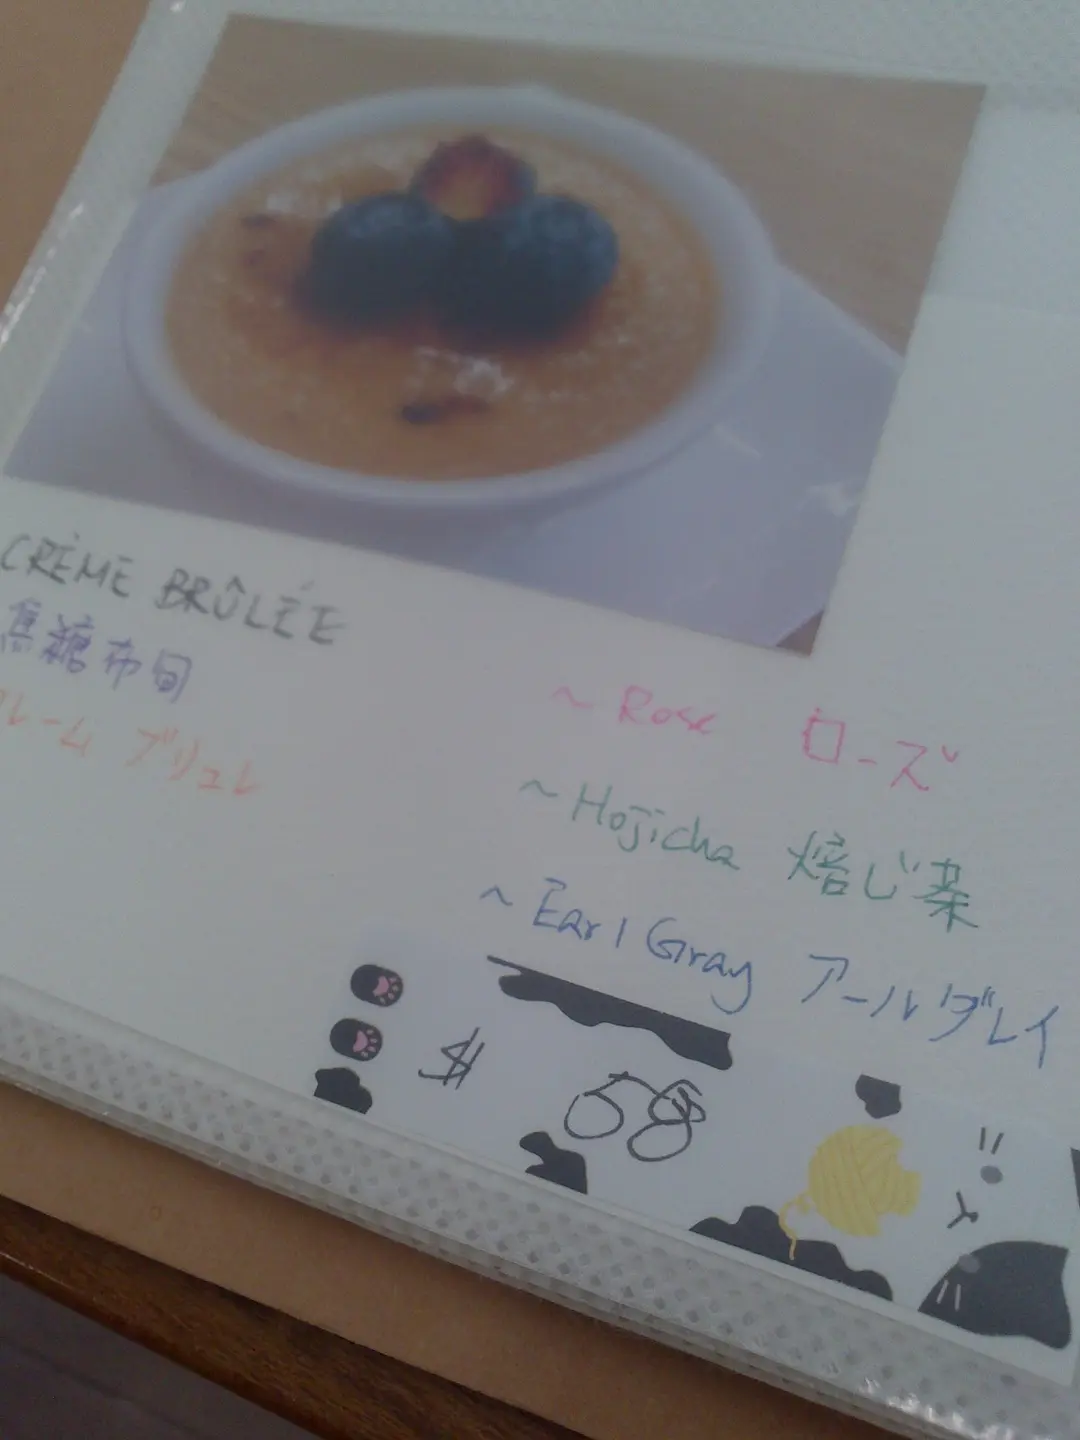 CRÈME BRÛLÉE
焦糖布甸
ルーム ブリュレ
~ Rose ローズ
~ Hojicha 焙じ茶
~ Earl Gray アールグレイ
$ 58